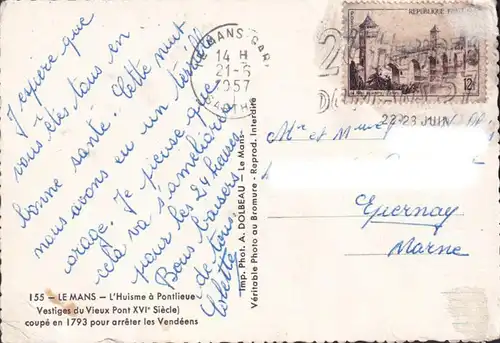 J'espère que
vous êtes tous en
bonne santé. Cette nuit
nous avons eu un terrible
orage. Je pense que
cela va s'améliorer
pour les 24 heures
Bons baisers
de tous.
Colette
155 - LE MANS - L'Huisme à Pontlieue
Vestiges du Vieux Pont XVIᵉ Siècle)
coupé en 1793 pour arrêter les Vendéens
Imp. Phot. A. DOLBEAU - Le Mans-
Véritable Photo au Bromure - Reprod. Interdite
LE MANS GARE
14 H
21-6
1957
SARTHE
REPUBLIQUE FRANÇAISE
12F
22-23 JUIN
Mr et Mme
Epernay
Marne